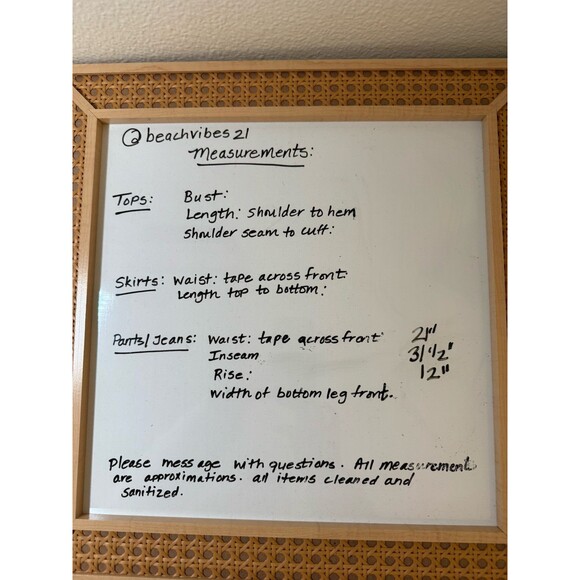 @beachvibes21
Measurements:
Tops: Bust:
Length: Shoulder to hem
Shoulder seam to cuff:
Skirts: Waist: tape across front:
Length top to bottom:
Pants/Jeans: Waist: tape across front: 21"
Inseam 31 1/2"
Rise: 12"
Width of bottom leg front.
Please message with questions. All measurement
are approximations. all items cleaned and
sanitized.